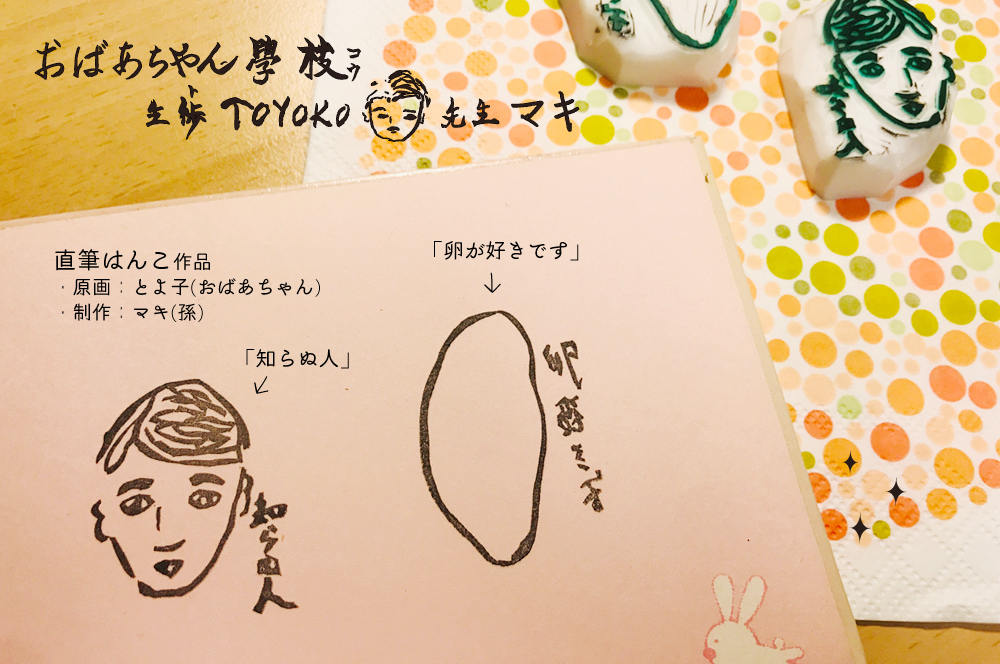 おばあちゃん學枝コウ
生徒ト TOYOKO 先生 マキ
直筆はんこ作品
・原画：とよ子(おばあちゃん)
・制作：マキ(孫)
「知らぬ人」
↙
「卵が好きです」
↓
知らぬ人
卵好きです